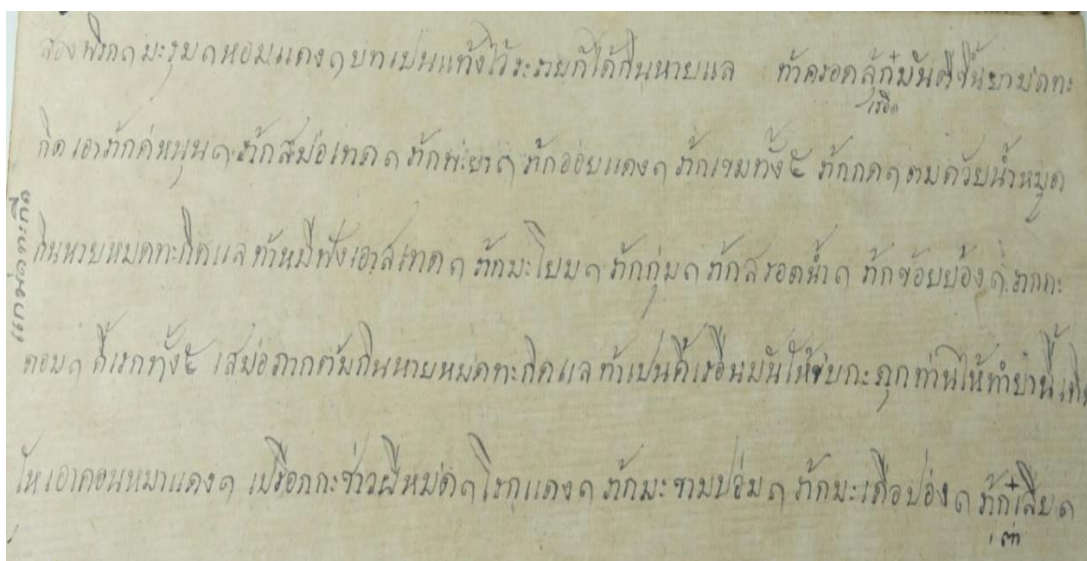 สองพริก ๑ มะรุม ๑ หอมแดง ๑ บทเปนแท้งไว้ระรายก็ได้กินหายแล ท้าครอดลุ้กมันตีขึ้นยามดทะ
เรือด
กิด เอารักคหนุน ๑ รักสมอเทด ๑ รักพะยา ๑ รักออยแดง ๑ รักเขมทั้ง ๕ รักกด ๑ ตมดวัยน้ำหมูด
กินหายหมดทะกิดแล ท้าหมีฟังเอาสเทด ๑ รักมะโยม ๑ รักกุ่ม ๑ รักสรอดน้ำ ๑ รักข้อยย้อง ๑ รากกะ
ตอม ๑ คี้เรกทั้ง ๕ เสมอภากตัมกินหายหมดทะกิดแล ท้าเปนคี้เรือนมันให้จับกะดุกท่านให้ทำยานี้
ไหเอาดอนหมาแดง ๑ เปรือกกะช่าวผีหมด ๑ โรกแดง ๑ รักมะขามปอม ๑ รักมะเดือปอง ๑ รักก่ำเสียด
เต่า